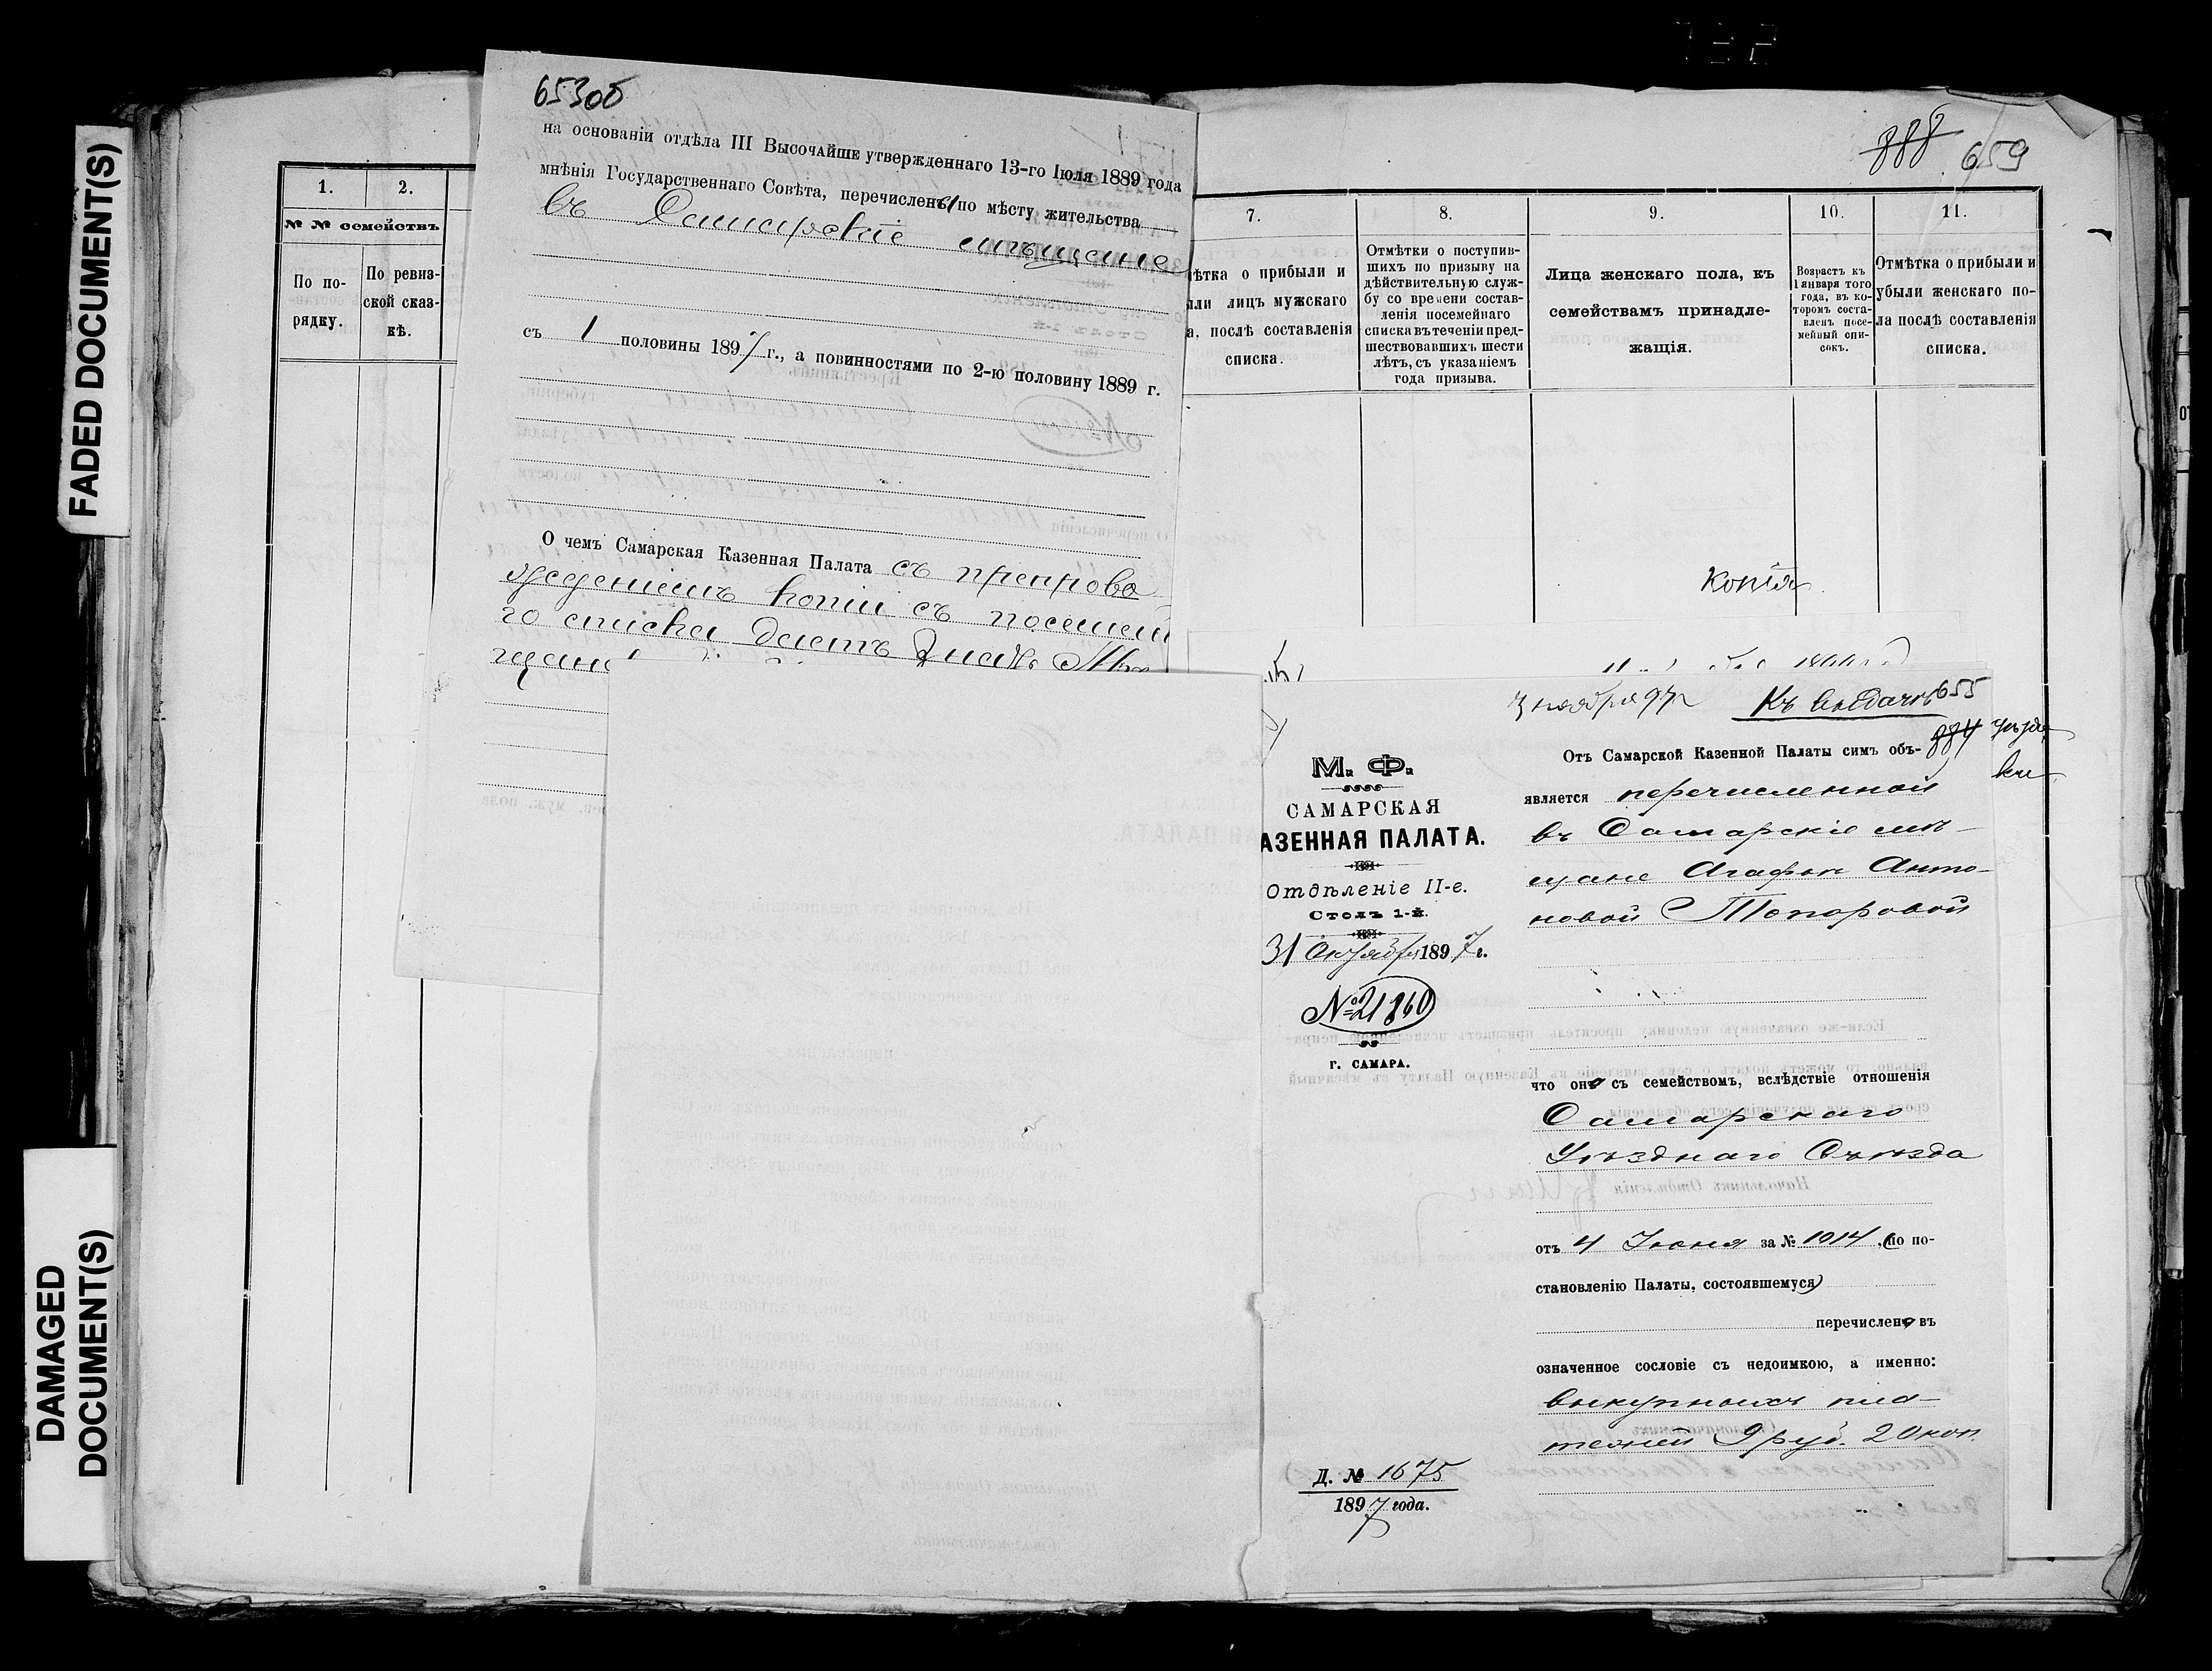 FADED DOCUMENT(S)
DAMAGED
DOCUMENT(S)
653об
на основаніи отдѣла III Высочайше утвержденнаго 13-го Іюля 1889 года
мнѣнія Государственнаго Совѣта, перечислены по мѣсту жительства
въ Самарскіе мѣщане
съ 1 половины 1897 г., а повинностями по 2-ю половину 1889 г.
О чемъ Самарская Казенная Палата съ препрово
жденіемъ копіи съ посемей
го списка даетъ знать Мѣ
щанс
1.
2.
№ № семействъ
По по-
рядку.
По ревиз-
ской сказ-
кѣ.
888 659
7.
8.
9.
10.
11.
ѣтка о прибыли и
ыли лицъ мужскаго
а, послѣ составленія
списка.
Отмѣтки о поступив-
шихъ по призыву на
дѣйствительную служ-
бу со времени состав-
ленія посемейнаго
списка въ теченіи пред-
шествовавшихъ шести
лѣтъ, съ указаніемъ
года призыва.
Лица женскаго пола, къ
семействамъ принадле-
жащія.
Возрастъ къ
1 января того
года, въ ко-
торомъ соста-
вленъ посе-
мейный спи-
сокъ.
Отмѣтка о прибыли и
убыли женскаго по-
ла послѣ составленія
списка.
Копія
3 ноября 97 г
Къ выдачѣ 655
884
М. Ф.
САМАРСКАЯ
АЗЕННАЯ ПАЛАТА.
Отдѣленіе II-е.
Столъ 1-й.
31 Октября 1897 г.
№ 21860
г. САМАРА.
Д. № 1675
1897 года.
Отъ Самарской Казенной Палаты симъ объ-
является перечисленной
въ Самарскіе мѣ-
щане Агафьѣ Анто-
новой Топоровой
что она съ семействомъ, вслѣдствіе отношенія
Самарскаго
Уѣзднаго Съѣзда
отъ 4 Іюня за № 1014, (по по-
становленію Палаты, состоявшемуся)
перечислена въ
означенное сословіе съ недоимкою, а именно:
выкупныхъ пла-
тежей 9 руб. 20 коп.